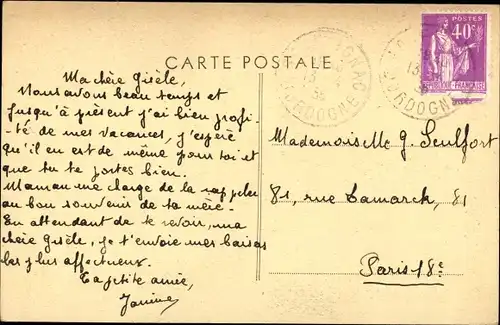 CARTE POSTALE
POSTES
40c
REPUBLIQUE FRANÇAISE
DORDOGNE
DORDOGNE
Ma chère Gisèle,
Nous avons beau temps et
jusqu'à présent j'ai bien profi-
té de mes vacances, j'espère
qu'il en est de même pour toi et
que tu te portes bien.
Maman me charge de la rappeler
au bon souvenir de ta mère.
En attendant de te revoir, ma
chère Gisèle, je t'envoie mes baisers
les plus affectueux.
Ta petite amie,
Janine
Mademoiselle G. Seulfort
81, rue Lamarck, 81
Paris 18e